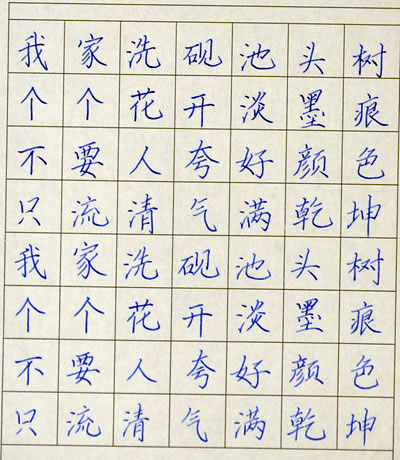 我家洗砚池头树
个个花开淡墨痕
不要人夸好颜色
只流清气满乾坤
我家洗砚池头树
个个花开淡墨痕
不要人夸好颜色
只流清气满乾坤